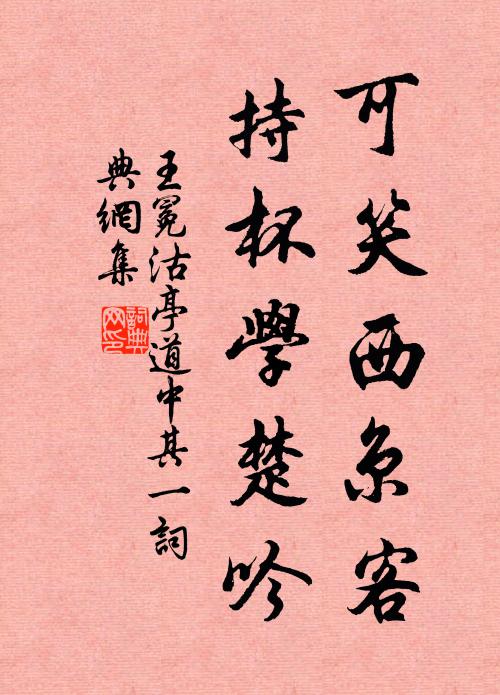 可笑西京客
持杯學楚吟
王冕沽亭道中其一詞
典網集
詞典網印